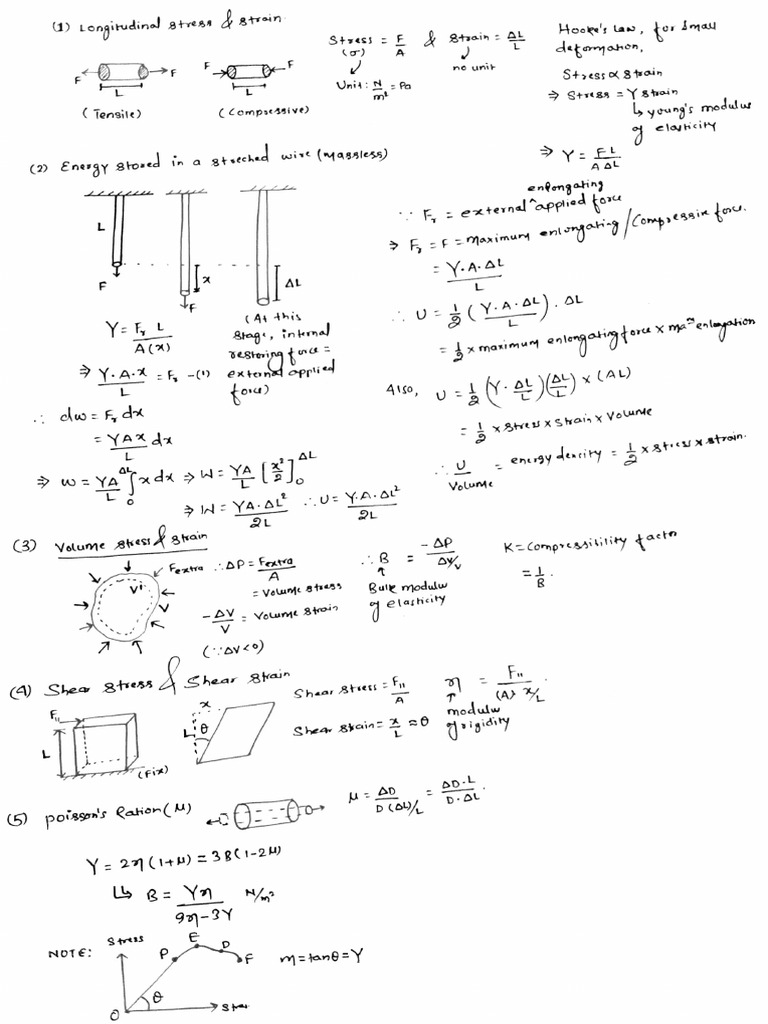 (1) Longitudinal stress & strain.
F F F F
L L
(Tensile) (Compressive)
Stress = F/A & strain = ΔL/L
(σ) no unit
Unit: N/m² = Pa
Hooke's law, for small
deformation,
Stress ∝ strain
⇒ Stress = Y strain
↳ young's modulus
of elasticity
⇒ Y = FL/AΔL
(2) Energy stored in a streched wire (massless)
L
F x F ΔL
Y = Fr L/A(x)
⇒ Y·A·x/L = Fr –(1)
(At this
stage, internal
restoring force =
external applied
force)
∴ dw = Fr dx
= YAx/L dx
⇒ w = YA/L ∫₀^ΔL x dx ⇒ W = YA/L [x²/2]₀^ΔL
⇒ W = YA·ΔL²/2L ∴ U = Y·A·ΔL²/2L
enlongating
∵ Fr = external ^ applied force
⇒ Fr = F = maximum enlongating / Compressive force.
= Y·A·ΔL/L
∴ U = 1/2 (Y·A·ΔL/L) · ΔL
= 1/2 × maximum enlongating force × maxᵐ enlongation
Also, U = 1/2 (Y·ΔL/L) (ΔL/L) × (AL)
= 1/2 × stress × strain × volume
∴ U/Volume = energy dencity = 1/2 × stress × strain.
(3) Volume stress & strain
Fextra
V' V
∴ ΔP = Fextra/A
= Volume stress
-ΔV/V = Volume strain
(∵ ΔV<0)
∴ B = -ΔP/ΔV/V
Bulk modulus
of elasticity
K = Compressibility factor
= 1/B.
(4) Shear stress & Shear strain
F₁₁ x
L L θ
(Fix)
Shear stress = F₁₁/A
Shear strain = x/L ≈ θ
η = F₁₁/(A) x/L.
modulus
of rigidity
(5) poisson's Ration (μ)
μ = ΔD/D(ΔL)/L = ΔD·L/D·ΔL.
Y = 2η(1+μ) = 3B(1-2μ)
↳ B = Yη/9η-3Y N/m²
NOTE: Stress
P E D F
O θ
m = tanθ = Y